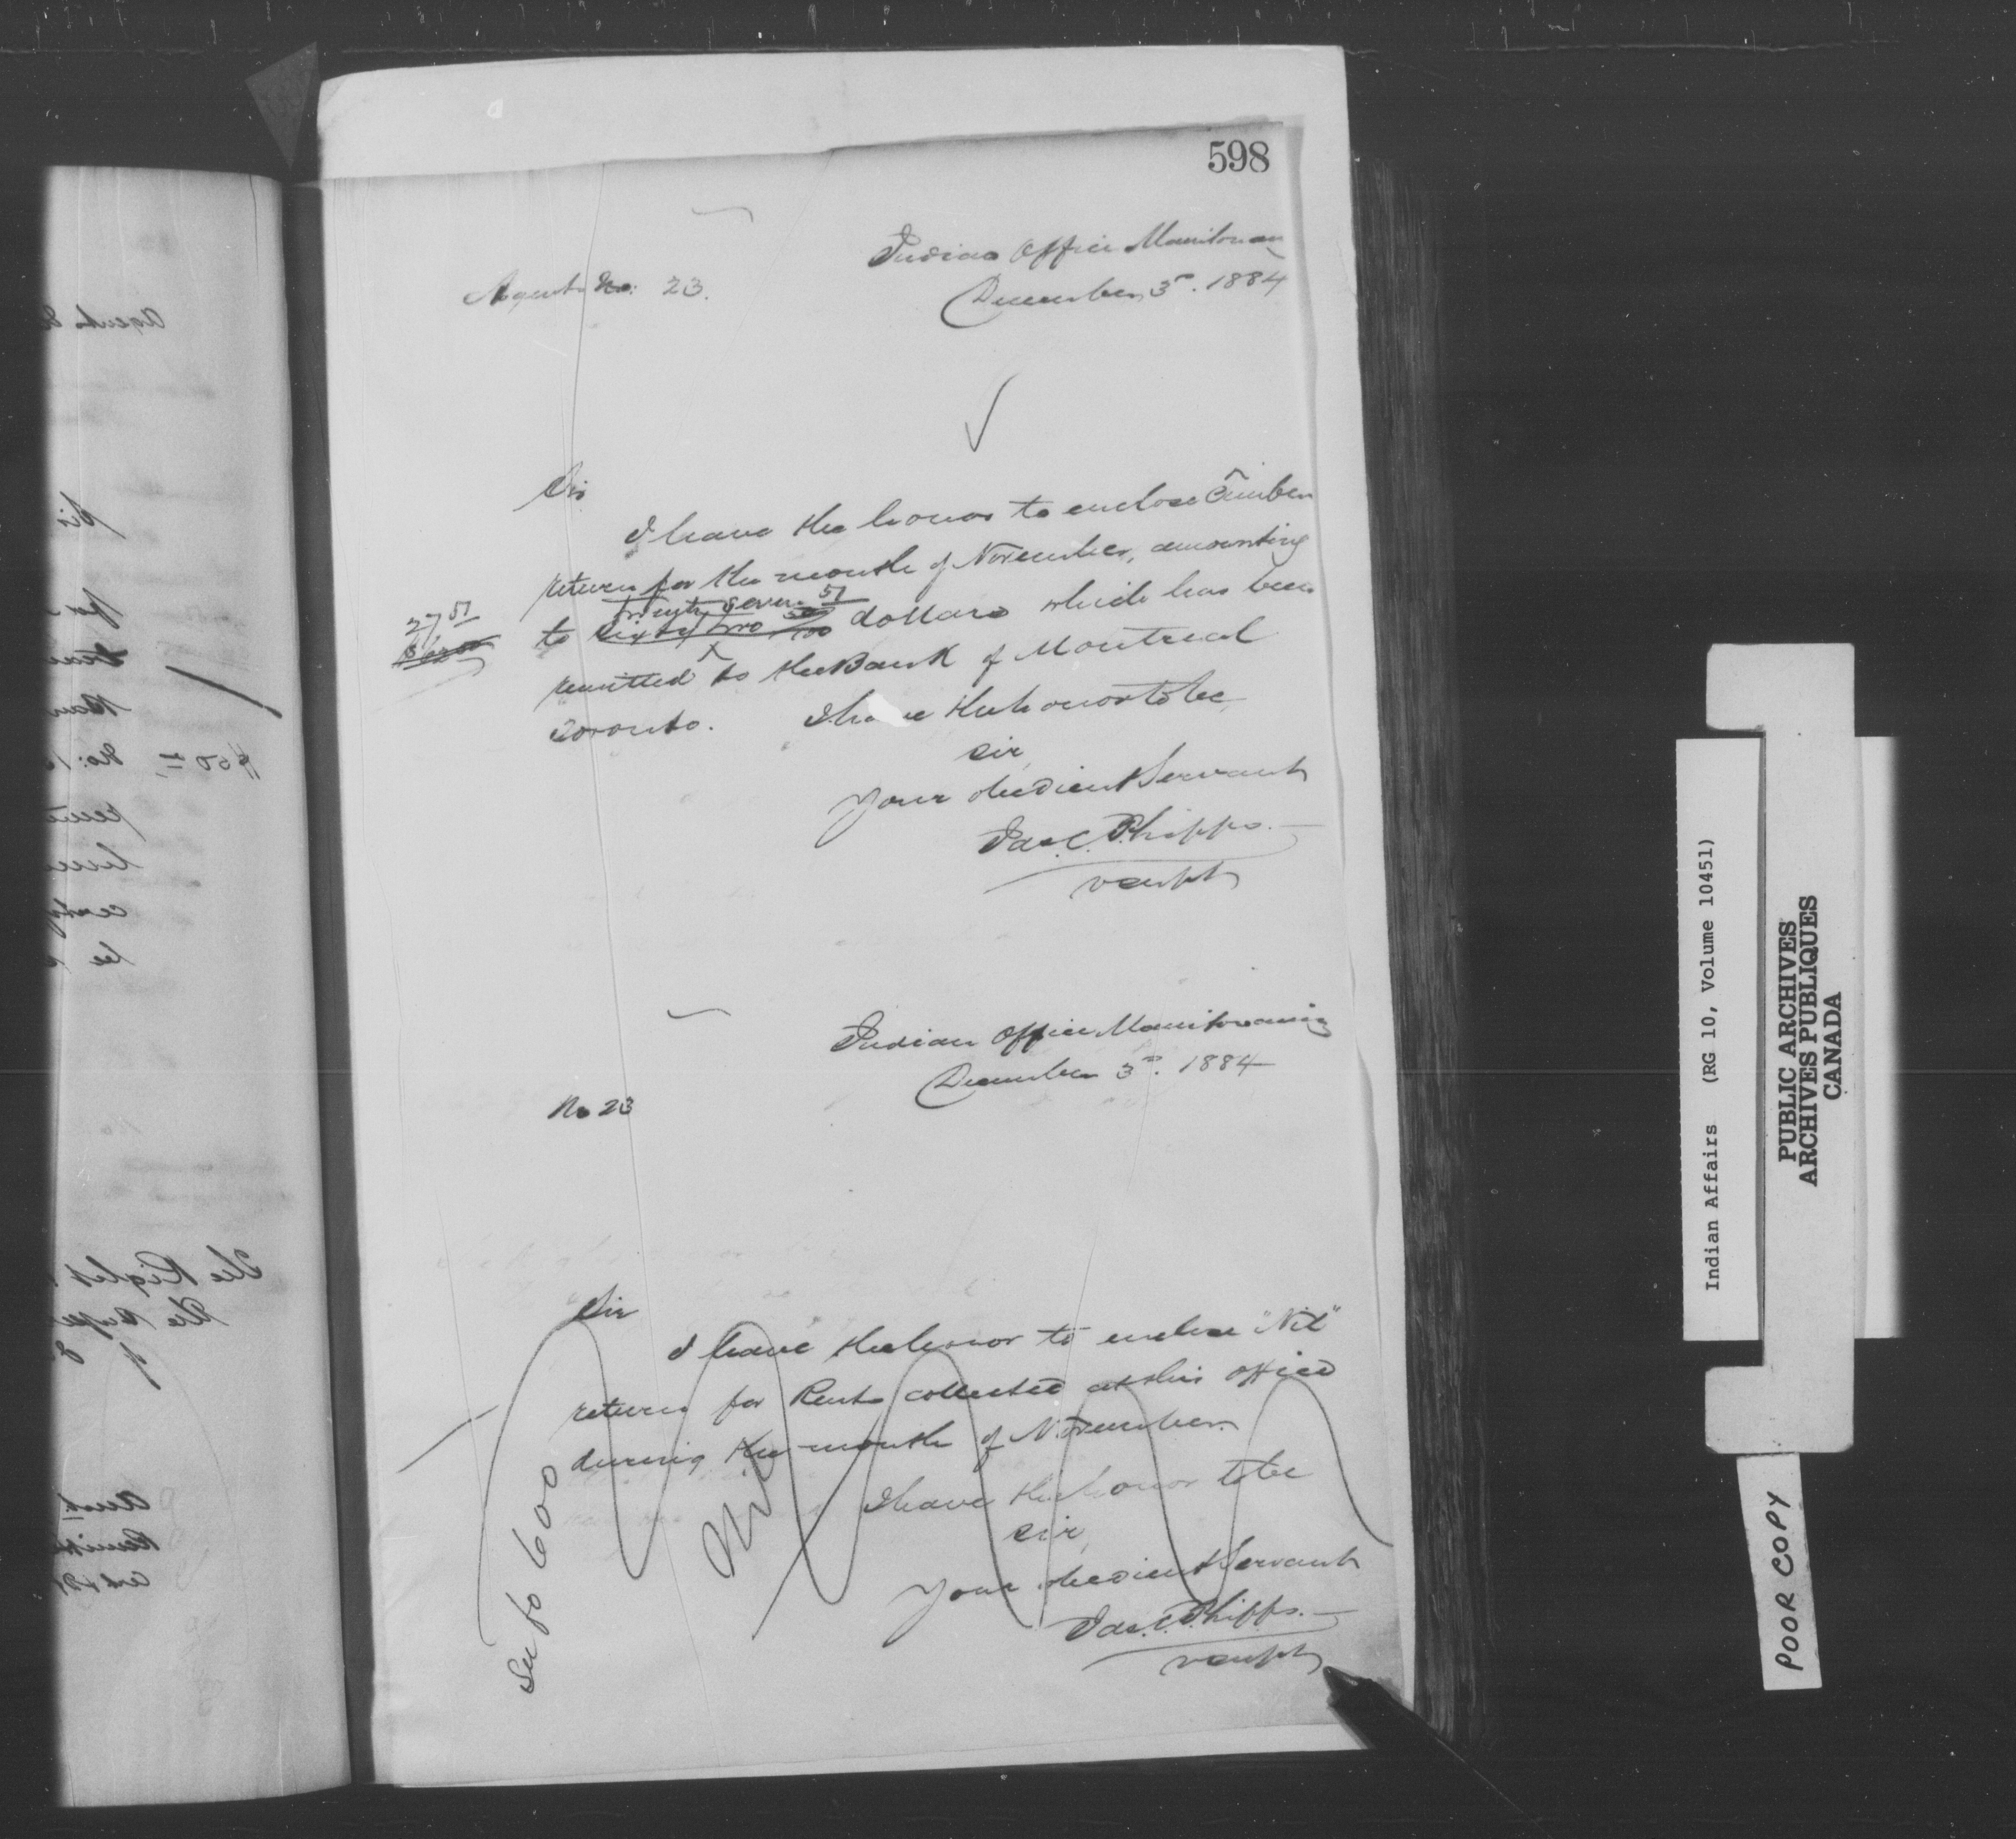 598
Indian Office Manitowaning
Agents No: 23.
December 3rd. 1884
Sir
I have the honor to enclose Timber
return for the month of November, amounting
twenty seven 51
27 51
to sixty two 50/100 dollars which has been
remitted to the Bank of Montreal
Toronto. I have the honor to be
Sir
Your obedient Servant
Jas. C. Phipps.
V Supt
Indian Office Manitowaning
December 3rd. 1884
No 23
Sir
I have the honor to enclose "Nil"
return for Rents collected at this office
during the month of November.
I have the honor to be
Sir,
Your obedient Servant
Jas. C. Phipps.
V Supt
See fo 600
Nil
Agents
Sir
$50
The Right
The Supe
of
Remitt
Indian Affairs (RG 10, Volume 10451)
PUBLIC ARCHIVES
ARCHIVES PUBLIQUES
CANADA
POOR COPY